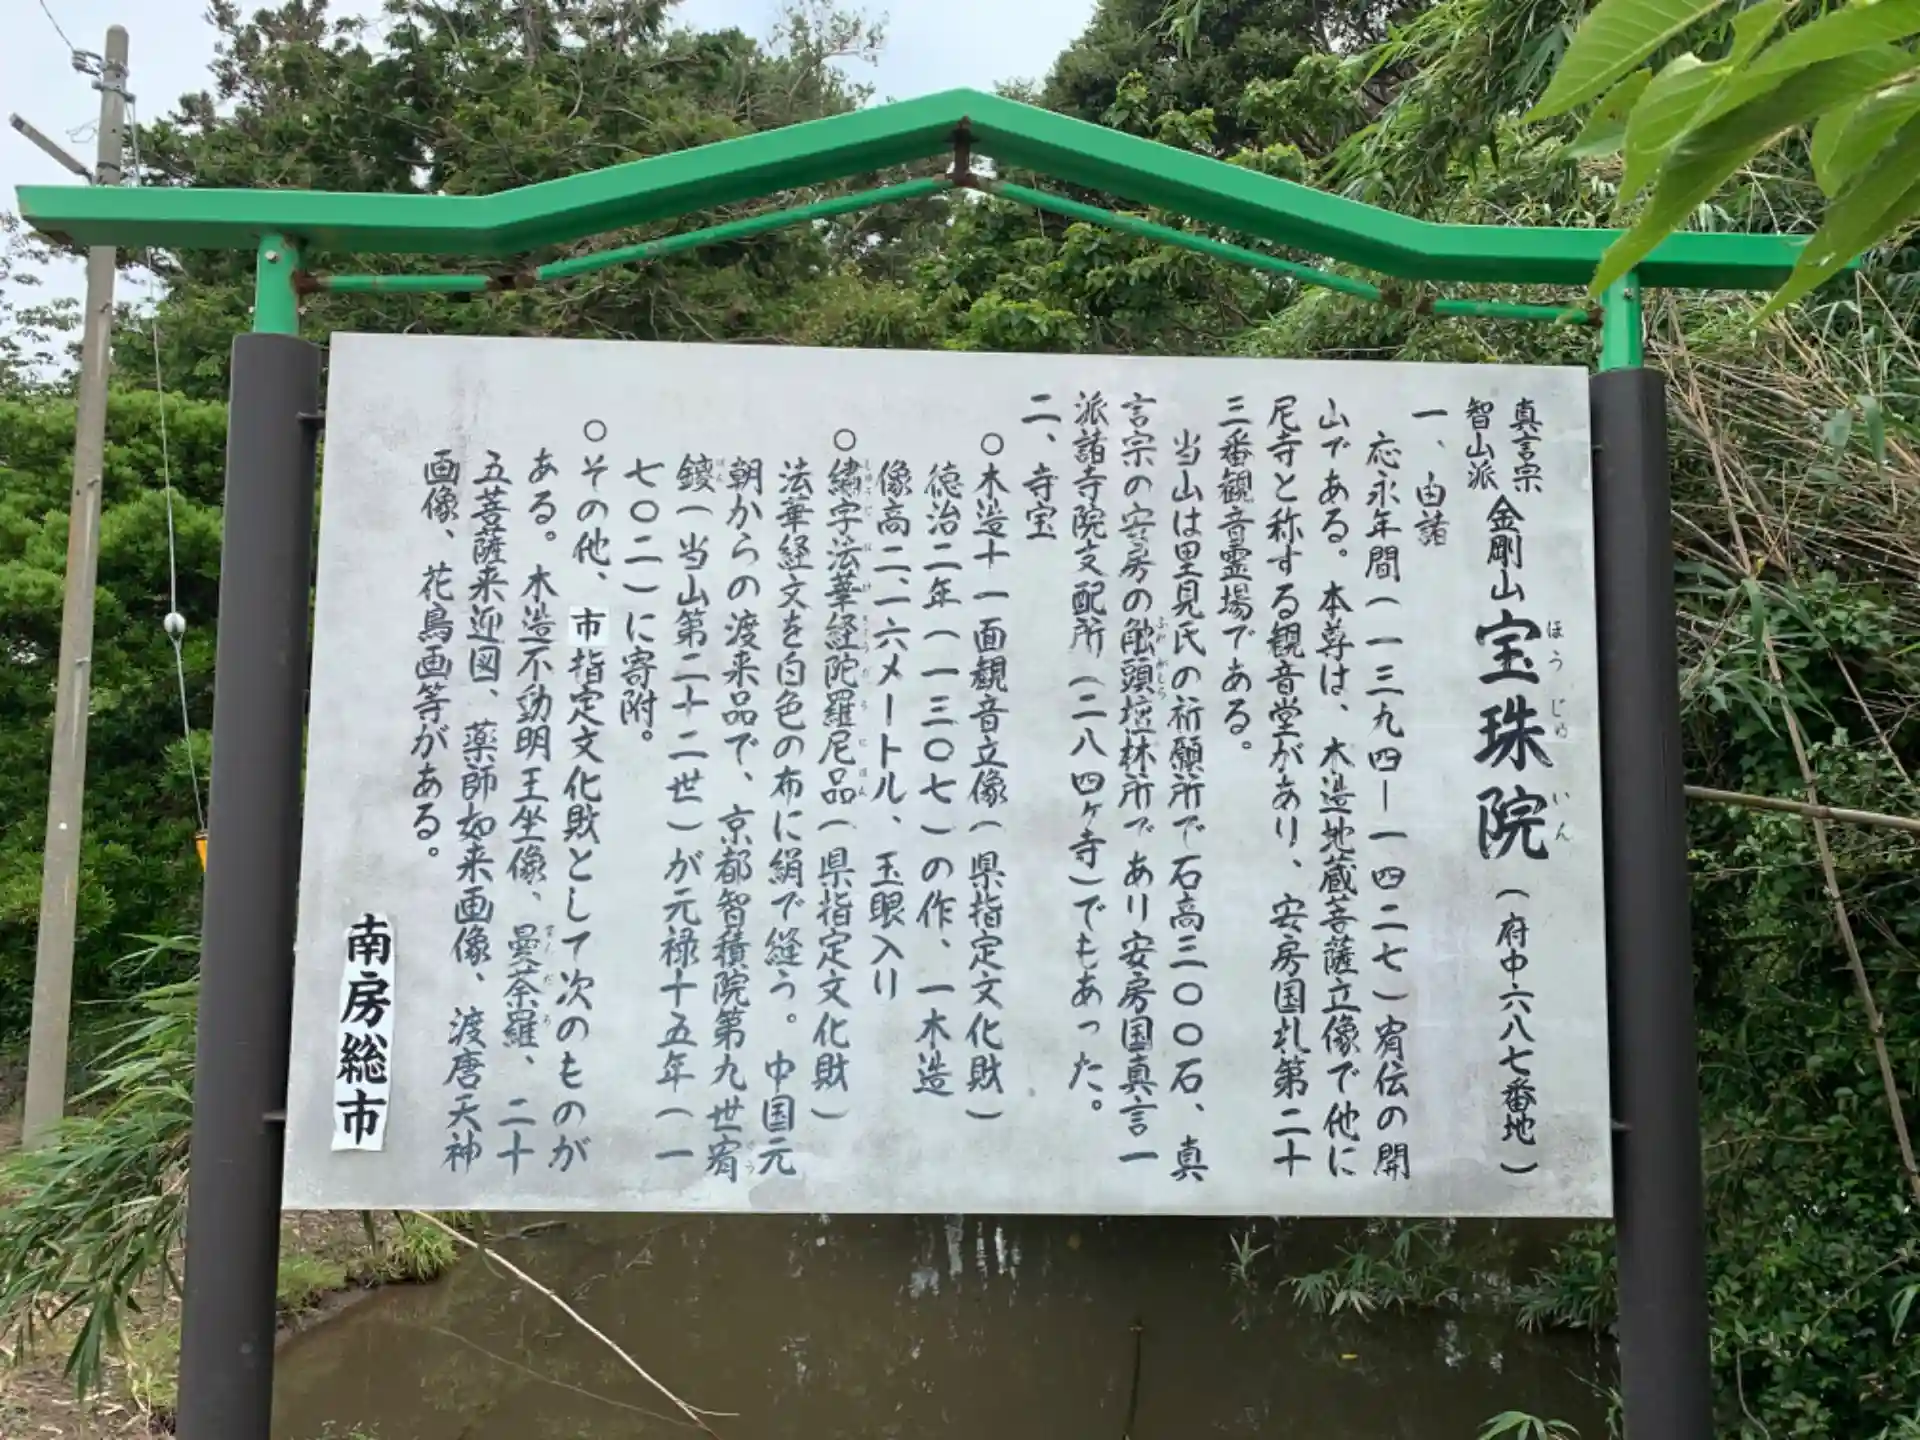 真言宗
智山派
金剛山 宝珠院（府中六八七番地）
ほう じゅ いん
一、由諸
応永年間（一三九四－一四二七）宥伝の開
山である。本尊は、木造地蔵菩薩立像で他に
尼寺と称する観音堂があり、安房国札第二十
三番観音霊場である。
当山は里見氏の祈願所で石高三〇〇石、真
言宗の安房の触頭壇林所であり安房国真言一
派諸寺院支配所（二八四ヶ寺）でもあった。
二、寺宝
○木造十一面観音立像（県指定文化財）
徳治二年（一三〇七）の作、一木造
像高二、一六メートル、玉眼入り
○繡字法華経陀羅尼品（県指定文化財）
法華経文を白色の布に絹で縫う。中国元
朝からの渡来品で、京都智積院第九世宥
鑁（当山第二十二世）が元禄十五年（一
七〇二）に寄附。
○その他、市指定文化財として次のものが
ある。木造不動明王坐像、曼荼羅、二十
五菩薩来迎図、薬師如来画像、渡唐天神
画像、花鳥画等がある。
南房総市